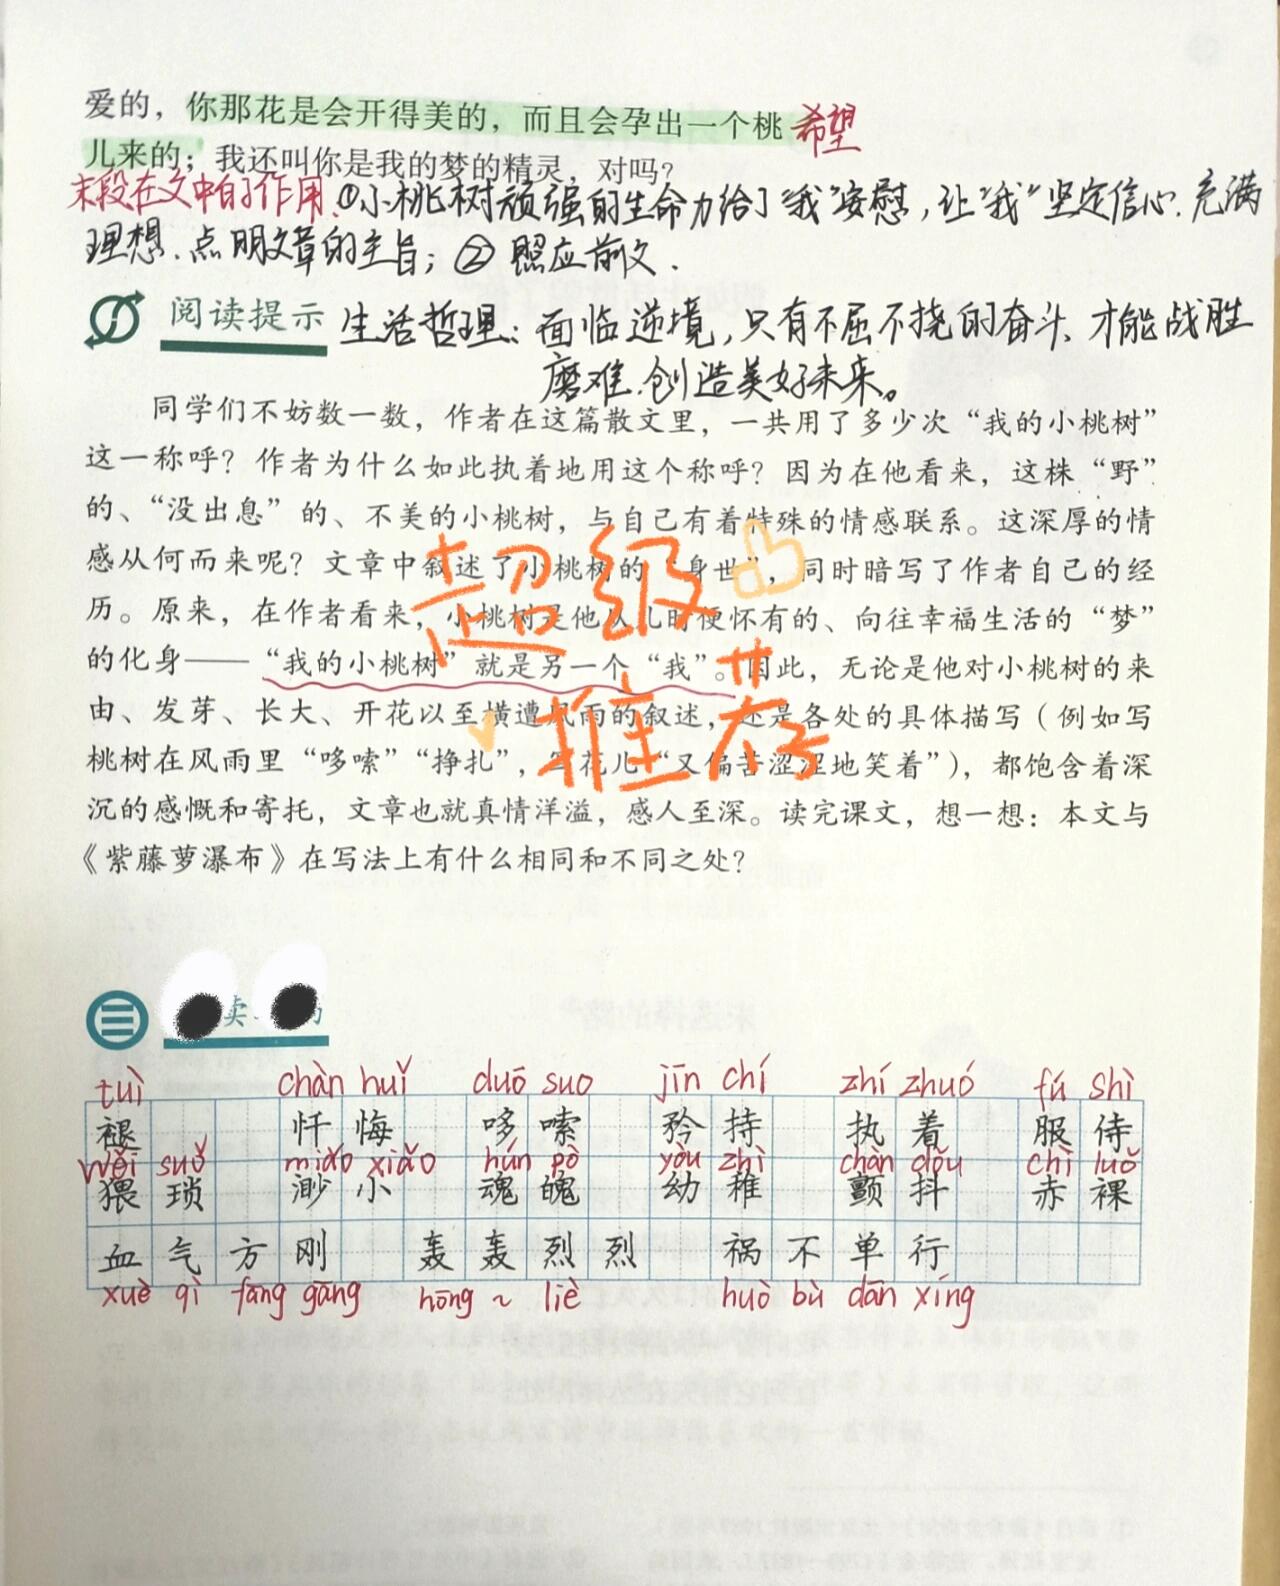 爱的，你那花是会开得美的，而且会孕出一个桃 希望
儿来的；我还叫你是我的梦的精灵，对吗？
末段在文中的作用.①小桃树顽强的生命力给了“我”安慰，让“我”坚定信心、充满
理想.点明文章的主旨；② 照应前文.
阅读提示 生活哲理：面临逆境，只有不屈不挠的奋斗、才能战胜
磨难.创造美好未来。
同学们不妨数一数，作者在这篇散文里，一共用了多少次“我的小桃树”
这一称呼？作者为什么如此执着地用这个称呼？因为在他看来，这株“野”
的、“没出息”的、不美的小桃树，与自己有着特殊的情感联系。这深厚的情
感从何而来呢？文章中叙述了小桃树的“身世”，同时暗写了作者自己的经
历。原来，在作者看来，小桃树是他从儿时便怀有的、向往幸福生活的“梦”
的化身——“我的小桃树”就是另一个“我”。因此，无论是他对小桃树的来
由、发芽、长大、开花以至横遭风雨的叙述，还是各处的具体描写（例如写
桃树在风雨里“哆嗦”“挣扎”，写花儿“又偏苦涩涩地笑着”），都饱含着深
沉的感慨和寄托，文章也就真情洋溢，感人至深。读完课文，想一想：本文与
《紫藤萝瀑布》在写法上有什么相同和不同之处？
超级
推荐
读
tuì chàn huǐ duō suo jīn chí zhí zhuó fú shì
褪 忏悔 哆嗦 矜持 执着 服侍
wěi suǒ miǎo xiǎo hún pò yòu zhì chàn dǒu chì luǒ
猥琐 渺小 魂魄 幼稚 颤抖 赤裸
血气方刚 轰轰烈烈 祸不单行
xuè qì fāng gāng hōng ~ liè huò bù dān xíng